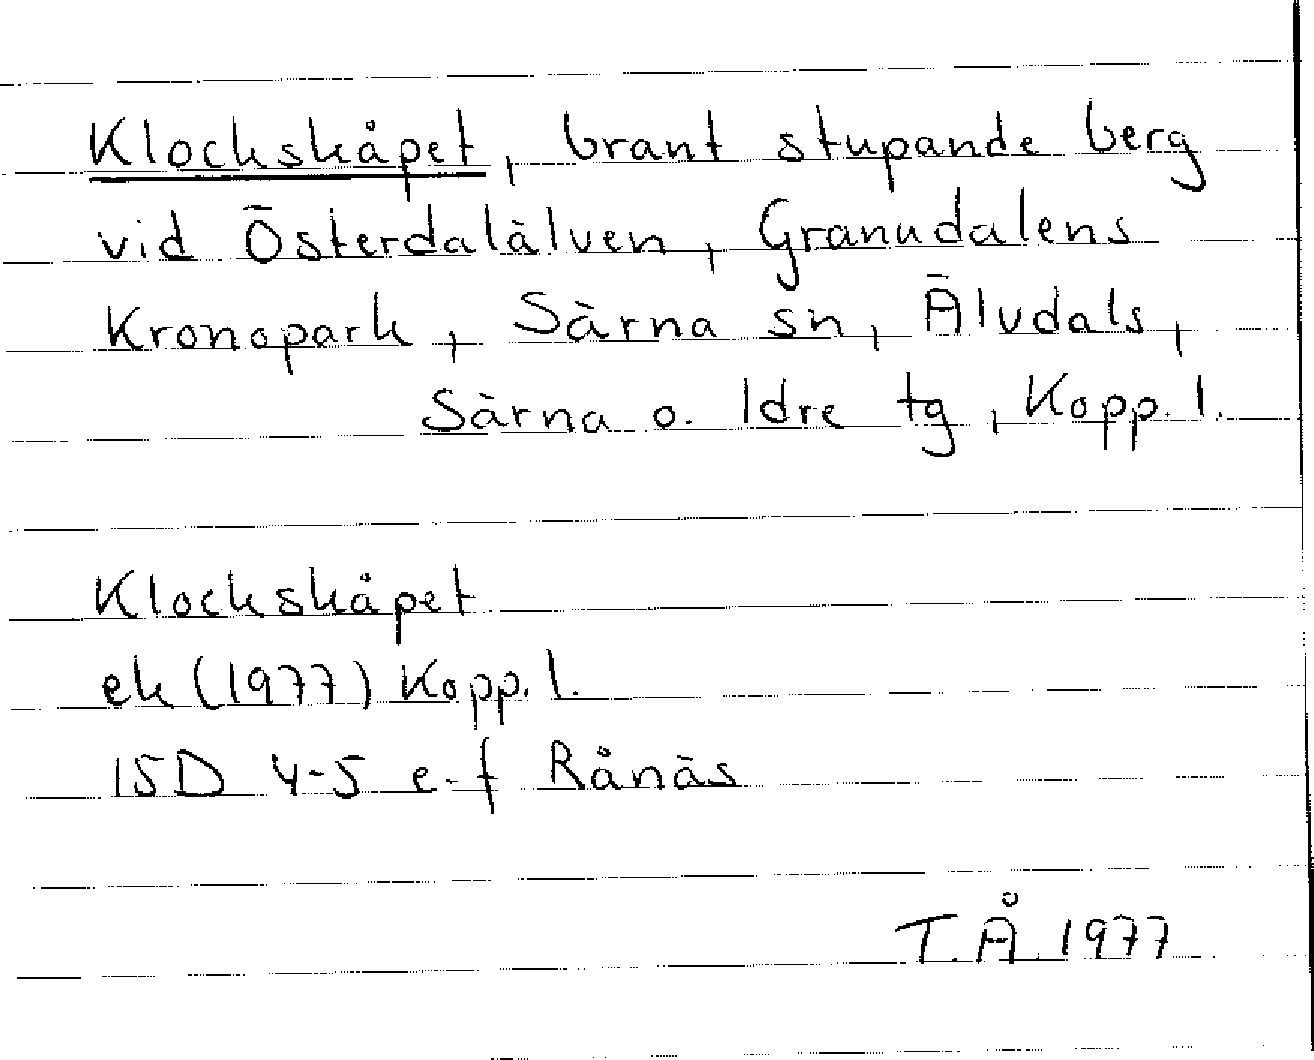 Klockskåpet, brant stupande berg
vid Österdalälven, Granudalens
Kronopark, Särna sn, Älvdals,
Särna o. Idre tg, Kopp. l.
Klockskåpet
ek (1977) Kopp. l.
15D 4-5 e-f Rånäs
T.Å 1977